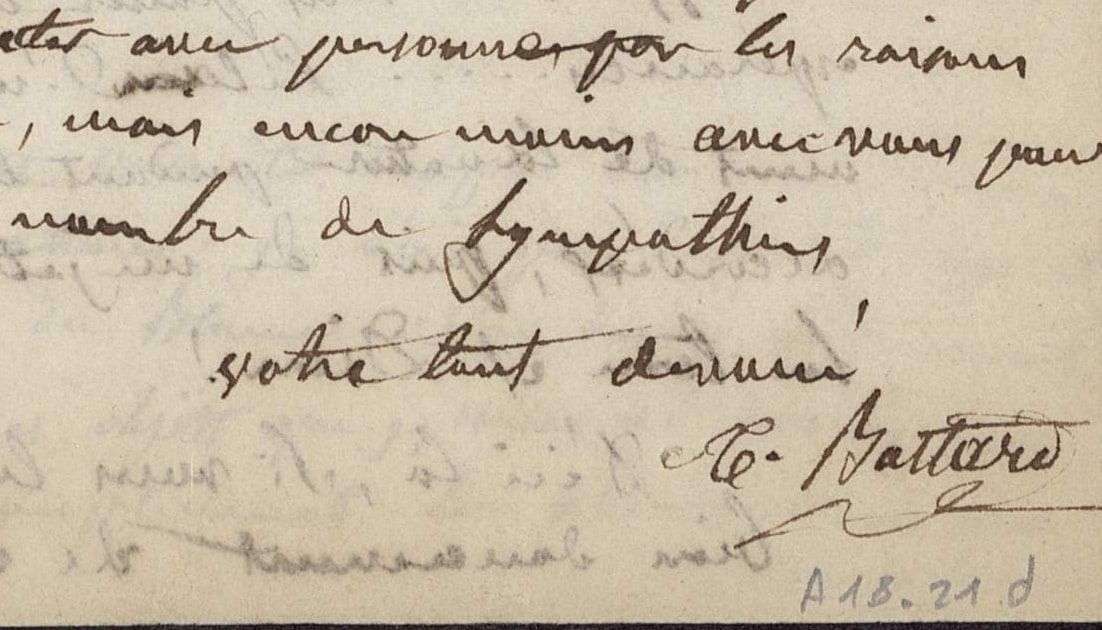 avec personnes par les raisons
, mais encore moins avec vous pour
nombre de Sympathies
votre tout devoué
C. Battard
A18.21 d